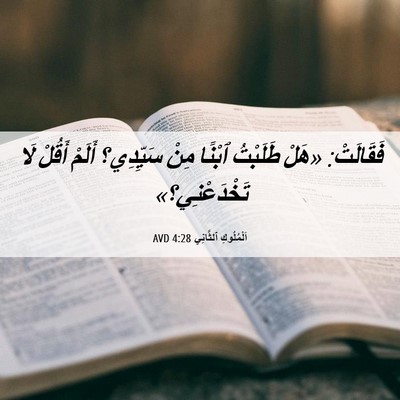 فَقَالَتْ: «هَلْ طَلَبْتُ ٱبْنًا مِنْ سَيِّدِي؟ أَلَمْ أَقُلْ لَا
تَخْدَعْنِي؟»
اَلْمُلُوكِ ٱلثَّانِي 4:28 AVD